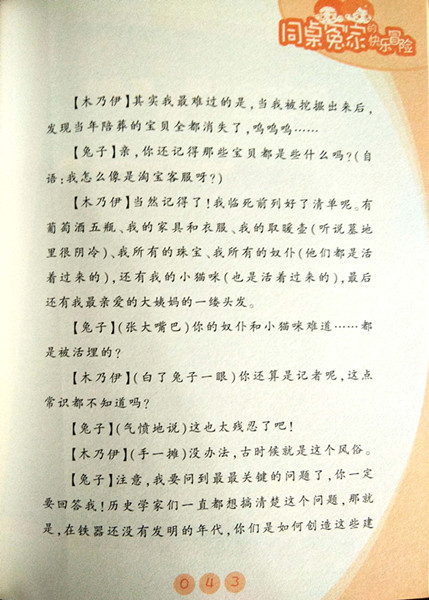 同桌冤家的快乐冒险
【木乃伊】其实我最难过的是，当我被挖掘出来后，
发现当年陪葬的宝贝全都消失了，呜呜呜……
【兔子】亲，你还记得那些宝贝都是些什么吗？（自
语：我怎么像是淘宝客服呀？）
【木乃伊】当然记得了！我临死前列好了清单呢。有
葡萄酒五瓶、我的家具和衣服、我的取暖壶（听说墓地
里很阴冷）、我所有的珠宝、我所有的奴仆（他们都是活
着过来的），还有我的小猫咪（也是活着过来的），最后
还有我最亲爱的大姨妈的一缕头发。
【兔子】（张大嘴巴）你的奴仆和小猫咪难道……都
是被活埋的？
【木乃伊】（白了兔子一眼）你还算是记者呢，这点
常识都不知道吗？
【兔子】（气愤地说）这也太残忍了吧！
【木乃伊】（手一摊）没办法，古时候就是这个风俗。
【兔子】注意，我要问到最最关键的问题了，你一定
要回答我！历史学家们一直都想搞清楚这个问题，那就
是，在铁器还没有发明的年代，你们是如何创造这些建
043